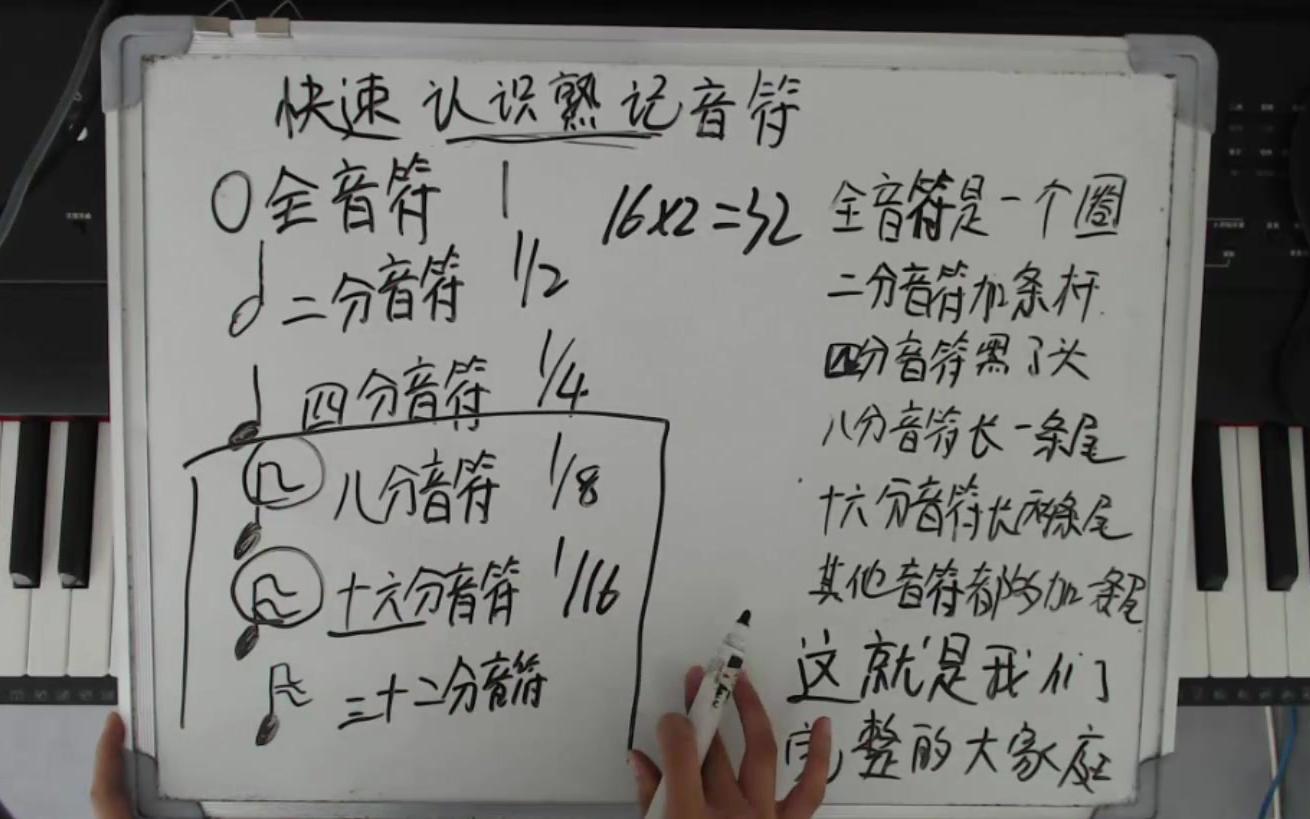 快速认识熟记音符
全音符 1
二分音符 1/2
四分音符 1/4
八分音符 1/8
十六分音符 1/16
三十二分音符
16x2=32
全音符是一个圈
二分音符加条杆
四分音符黑了头
八分音符长一条尾
十六分音符长两条尾
其他音符都多加一条尾
这就是我们
完整的大家庭